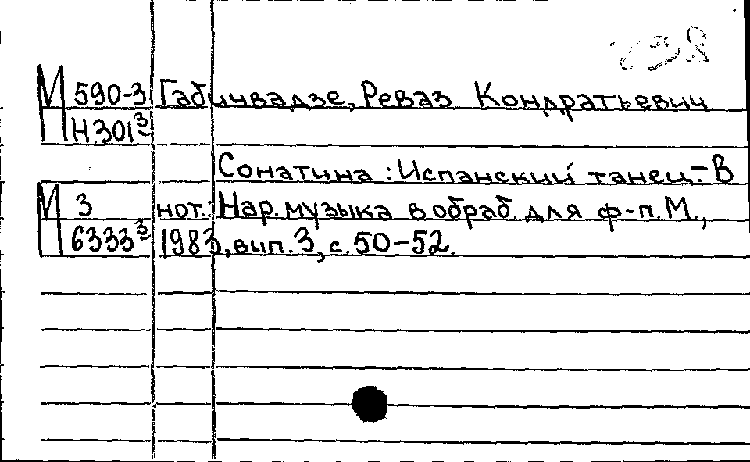 М 590-3 Габичвадзе, Реваз Кондратьевич
Н301³
Сонатина : Испанский танец. – В
М 3 нот.: Нар. музыка в обраб. для ф-п. М.,
6333³ 1983, вып. 3, с. 50-52.